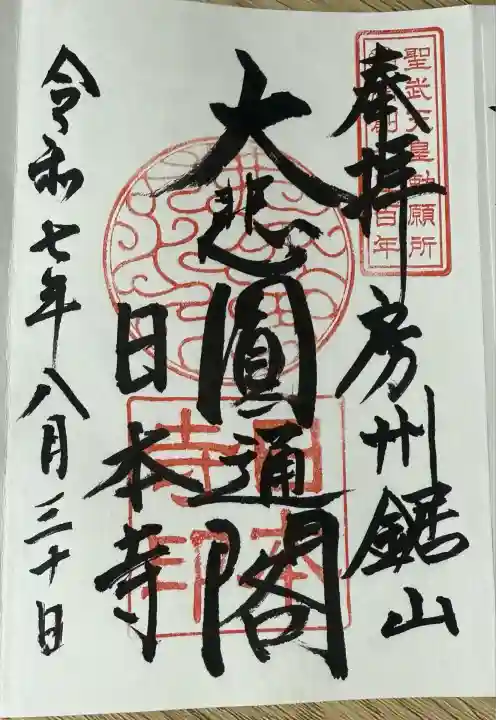 奉拝 房州鋸山
聖武天皇勅願所
百年
大悲圓通閣
日本寺
日本
寺印
令和七年八月三十日